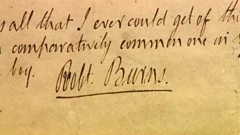 s all that I ever could get of the
comparatively common one in
boy. Robt. Burns.